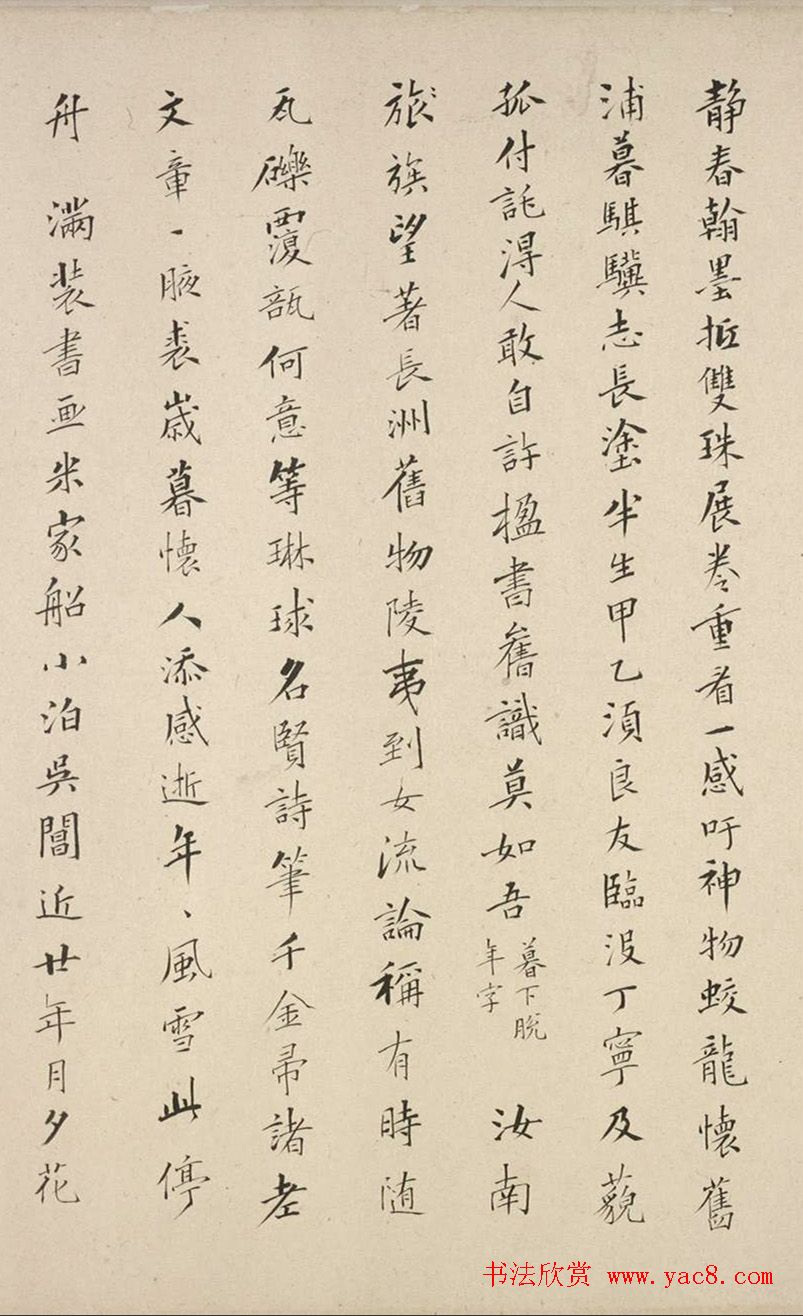 静春翰墨抵雙珠展卷重看一感吁神物蛟龍懷舊
浦暮騏驥志長塗半生甲乙湏良友臨没丁寧及藐
孤付託淂人敢自許楹書舊識莫如吾暮下脫年字 汝南
旅族望著長洲舊物陵夷到女流論稱有時随
瓦礫覆瓿何意等琳球名賢詩筆千金帚諸老
文章一腋裘歳暮懷人添感逝年、風雪此停
舟 滿裝書画米家船小泊吳閶近廿年月夕花
书法欣赏 www.yac8.com